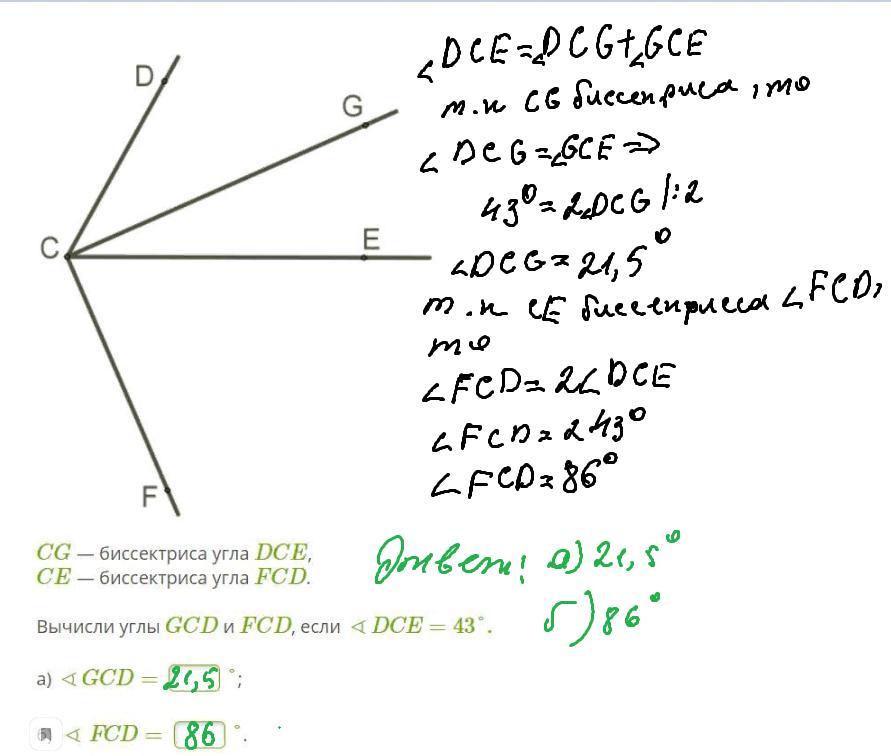 D
G
C
E
F
∠DCE=∠DCG+∠GCE
т.к CG биссектриса, то
∠DCG=∠GCE ⇒
43°=2∠DCG |:2
∠DCG=21,5°
т.к CE биссектрисса ∠FCD,
то
∠FCD=2∠DCE
∠FCD=2 43°
∠FCD=86°
CG — биссектриса угла DCE,
CE — биссектриса угла FCD.
Ответ: а) 21,5°
б) 86°
Вычисли углы GCD и FCD, если ∢ DCE = 43°.
а) ∢ GCD = 21,5 °;
∢ FCD = 86 °.